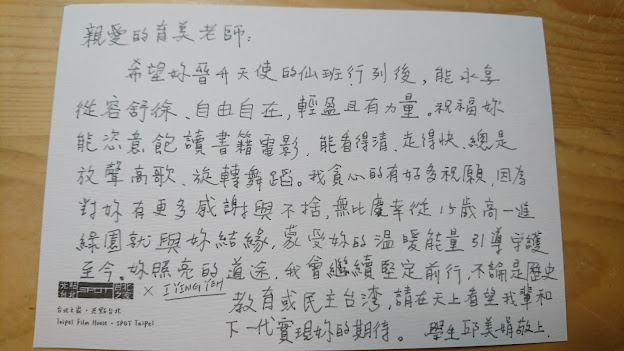 親愛的育美老師：
希望妳晉升天使的仙班行列後，能永享
從容舒徐、自由自在，輕盈且有力量。祝福妳
能恣意飽讀書籍電影、能看得清、走得快、總是
放聲高歌、旋轉舞蹈。我貪心的有好多祝願，因為
對妳有更多感謝與不捨，無比慶幸從15歲高一進
綠園就與妳結緣，蒙受妳的溫暖能量引導守護
至今。妳照亮的道途，我會繼續堅定前行，不論是歷史
教育或民主台灣，請在天上看望我輩和
下一代實現妳的期待。 學生邱美娟敬上.
光點台北 SPOT 台北之家 × IYING YEH
台北之家・光點台北
Taipei Film House・SPOT Taipei